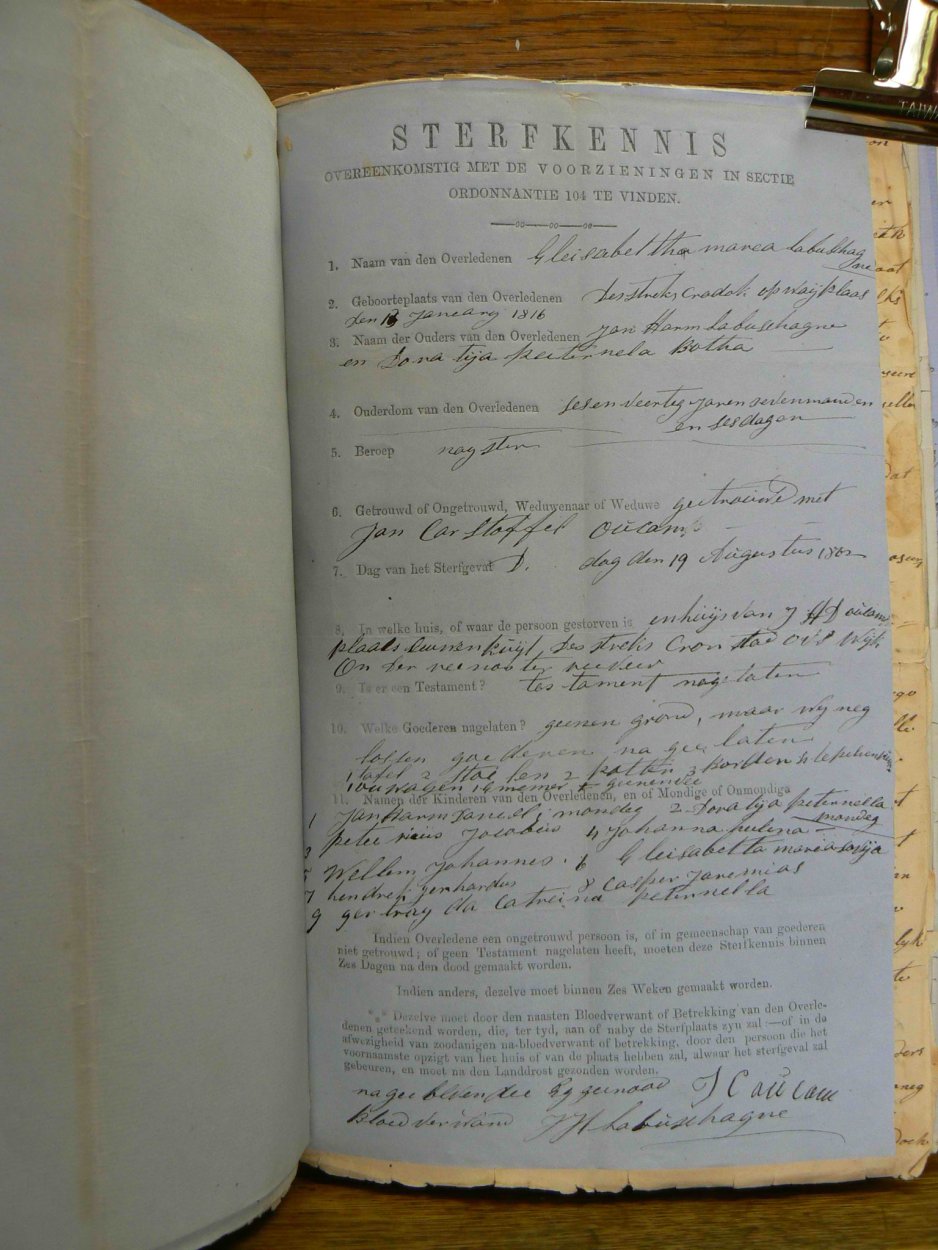 STERFKENNIS
OVEREENKOMSTIG MET DE VOORZIENINGEN IN SECTIE
ORDONNANTIE 104 TE VINDEN.
1. Naam van den Overledenen Eleisabettha marea Labushag
2. Geboorteplaats van den Overledenen Desstreks Cradok op waijklaas
den 13 Janeary 1816
3. Naam der Ouders van den Overledenen Jan Harm Labuschagne
en Dora tija peiternela Botha
4. Ouderdom van den Overledenen sesen veertig Jaren sevenmanden
en sesdagen
5. Beroep nayster
6. Getrouwd of Ongetrouwd, Weduwenaar of Weduwe getrouwd met
Jan Carstoffel Oücamp
7. Dag van het Sterfgeval D. dag den 19 Augustus 1862
8. In welke huis, of waar de persoon gestorven is enhuijs van J
plaats Desstreks Cronstad
On der
9. Is er een Testament? tes tament nag laten
10. Welke Goederen nagelaten? geenen grond, maar wij neg
lossen goederen na gee laten
1 tafel 2 Stoe len 2 potten 3 borden 4 lepels
1 ouwagen 1 eemmer
11. Namen der Kinderen van den Overledenen, en of Mondige of Onmondige
1 Jan Harm Daneel mondeg 2 Dora tija peternella
mondeg
3 pete rieus Jacobus 4 Johanna helena
5 Wellem Johannes. 6 Eleisabetta marea
7 hendrek genhardus 8 Casper Jaremias
9 ger truy da Catreina peternella
Indien Overledene een ongetrouwd persoon is, of in gemeenschap van goederen
niet getrouwd; of geen Testament nagelaten heeft, moeten deze Sterfkennis binnen
Zes Dagen na den dood gemaakt worden.
Indien anders, dezelve moet binnen Zes Weken gemaakt worden.
*** Dezelve moet door den naasten Bloedverwant of Betrekking van den Overle-
denen geteekend worden, die, ter tyd, aan of naby de Sterfplaats zyn zal:—of in de
afwezigheid van zoodanigen na-bloedverwant of betrekking, door den persoon die het
voornaamste opzigt van het huis of van de plaats hebben zal, alwaar het sterfgeval zal
gebeuren, en moet na den Landdrost gezonden worden.
nagee blevendee Eggenood J C oücam
Bloedverwand J H Labuschagne
TAIWA